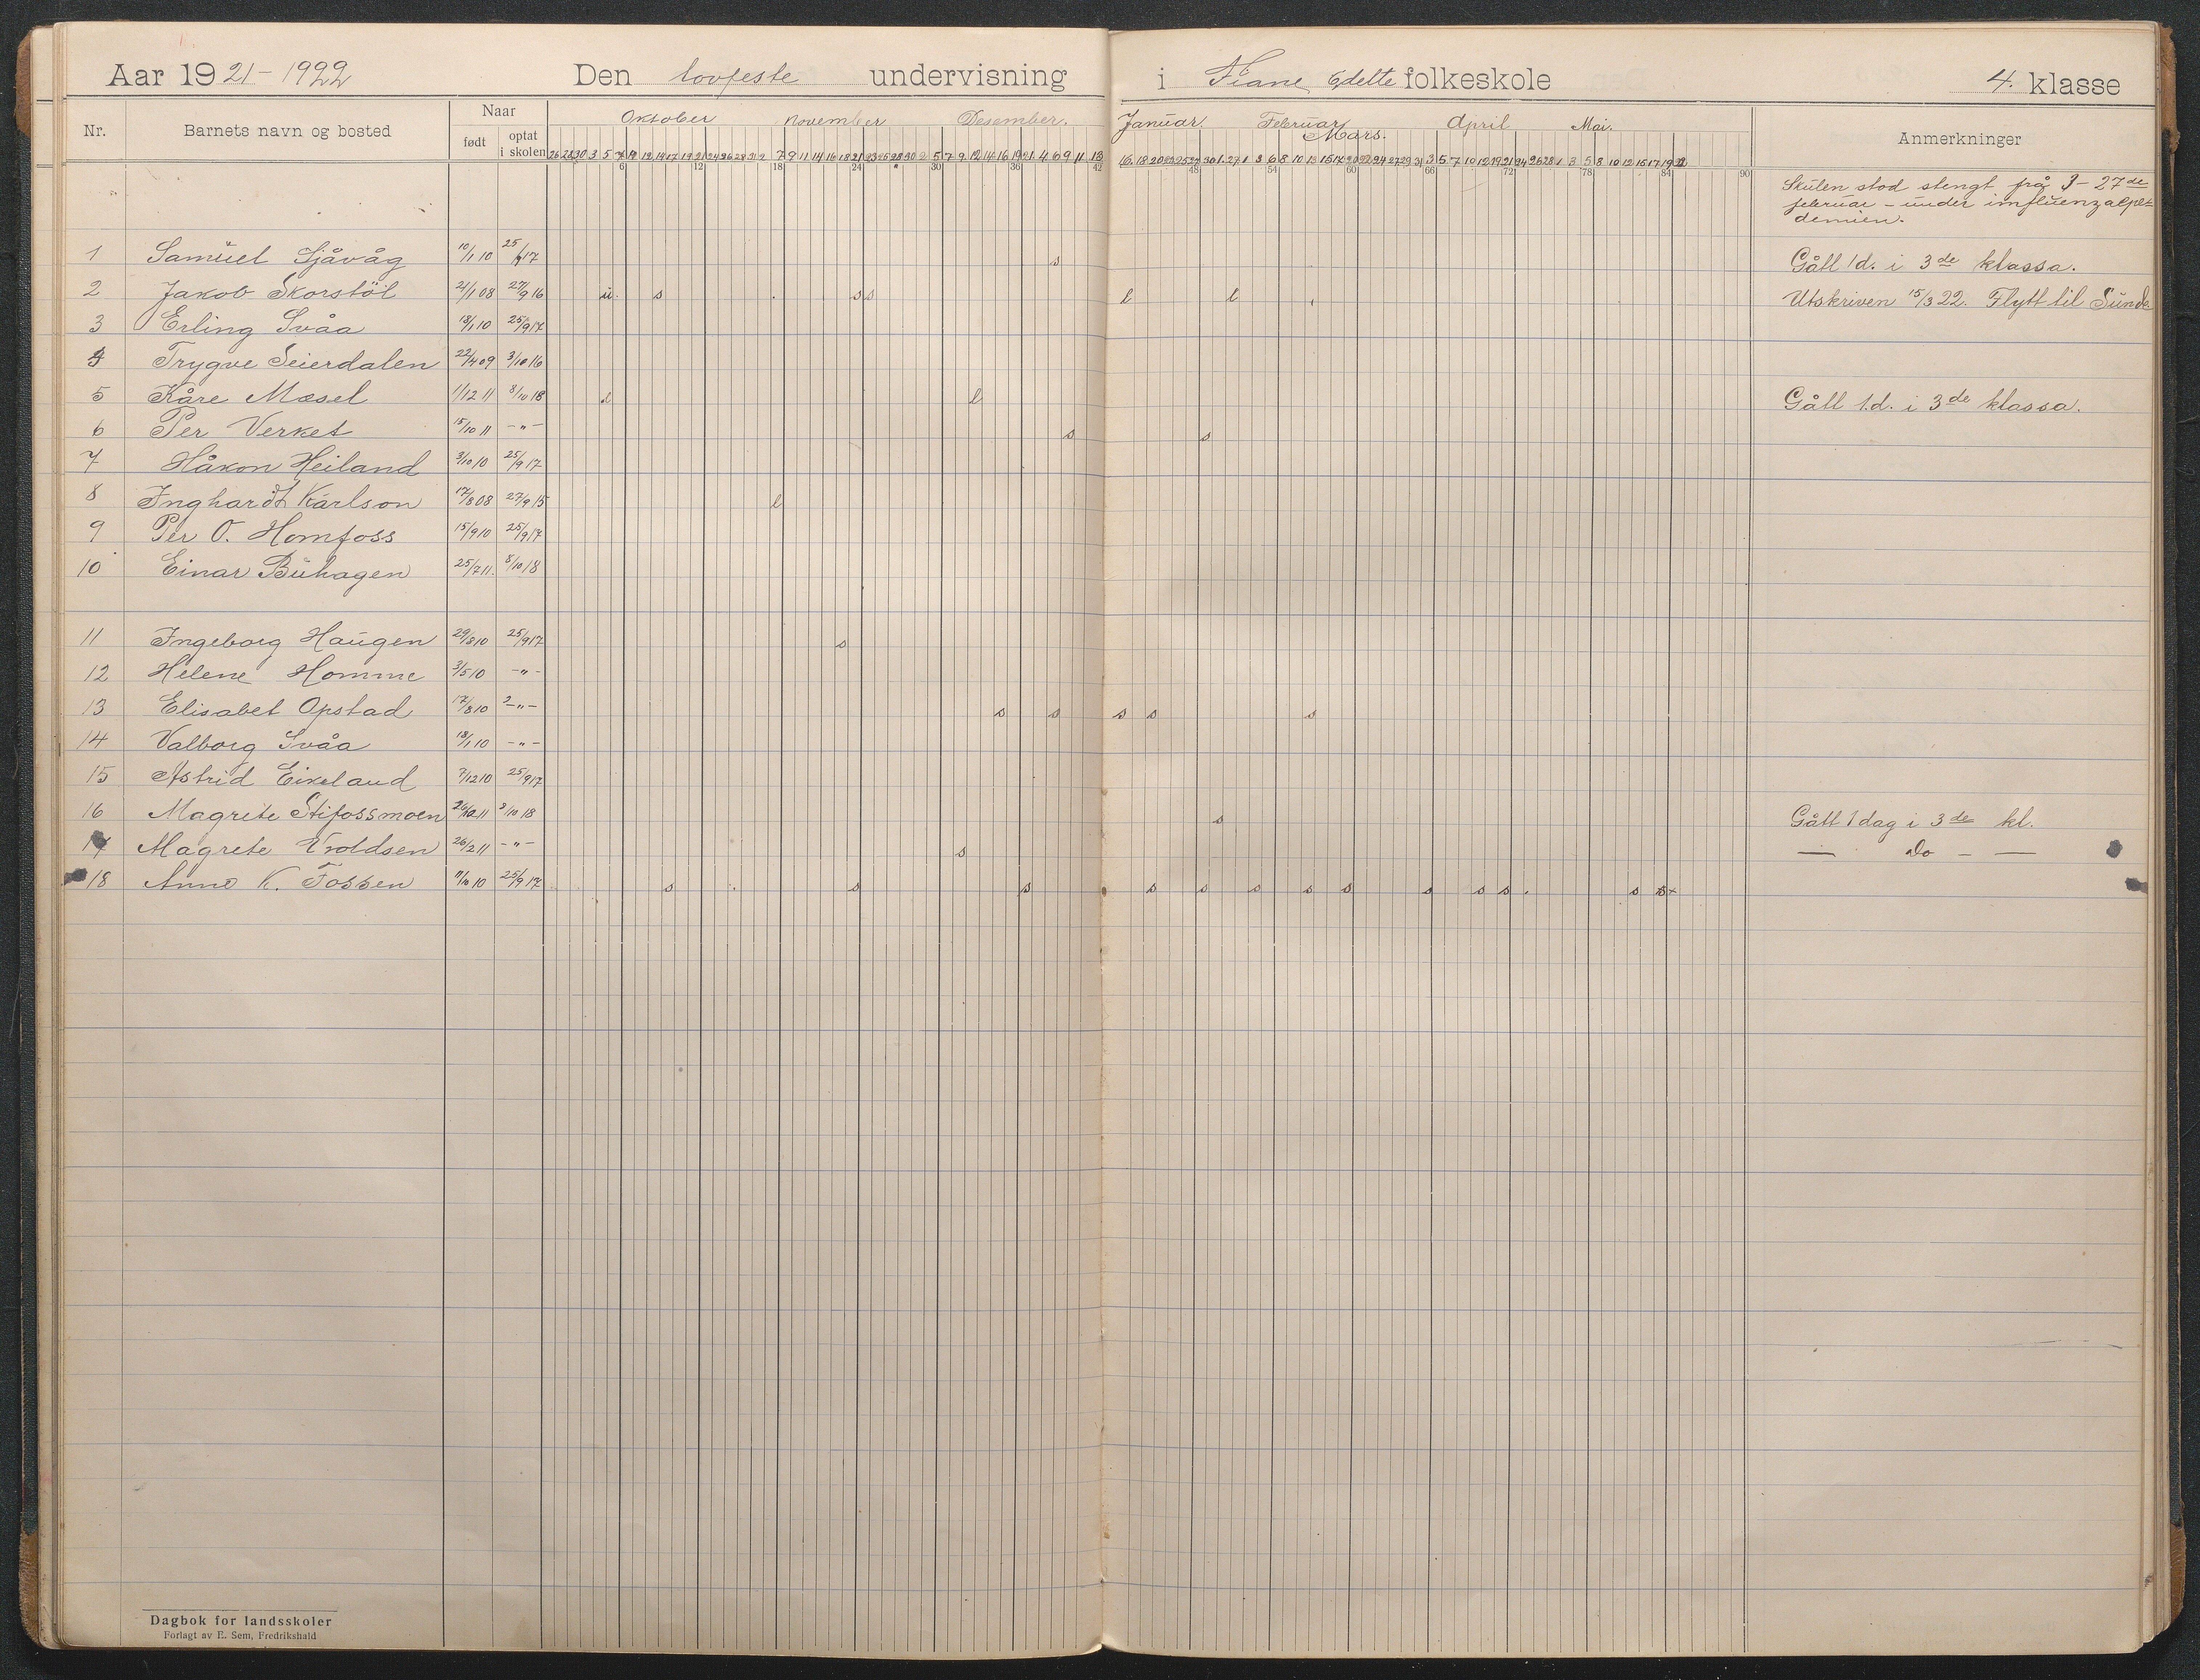 Aar 1921-1922 Den lovfeste undervisning i Fiane folkeskole 4. klasse
Nr. Barnets navn og bosted Naar født optat i skolen Oktober November Desember. Januar Februar Mars. April Mai. Anmerkninger
6 12 18 24 30 36 42 48 54 60 66 72 78 84 90
Skulen stod stengt frå 3-27de
februar - under influenzaepi-
demien.
1 Samuel Sjåvåg 10/1 10 25/9 17 s Gått 1d. i 3de klassa.
2 Jakob Skorstöl 21/1 08 27/9 16 u. s s s l l Utskriven 15/3 22. Flytt til Sunde
3 Erling Svåa 18/1 10 25/9 17
4 Trygve Seierdalen 22/4 09 3/10 16
5 Kåre Mæsel 1/12 11 8/10 18 l l Gått 1.d. i 3de klassa.
6 Per Verket 15/10 11 -"- s s
7 Håkon Heiland 3/10 10 25/9 17
8 Inghardt Karlson 17/8 08 27/9 15 l
9 Per O. Homfoss 15/9 10 25/9 17
10 Einar Buhagen 25/7 11. 8/10 18
11 Ingeborg Haugen 29/8 10 25/9 17 s
12 Helene Homme 3/5 10 -"-
13 Elisabet Opstad 17/8 10 -"- s s s s s
14 Valborg Svåa 18/1 10 -"-
15 Astrid Eikeland 7/12 10 25/9 17
16 Magrete Stifossmoen 11 8/10 18 s Gått 1 dag i 3de kl.
17 Magrete Evoldsen 26/2 11 -"- s — Do - —
18 Anne K. Fossen 11/10 10 25/9 17 s s s s s s s s s s s s s
Dagbok for landsskoler
Forlagt av E. Sem, Fredrikshald